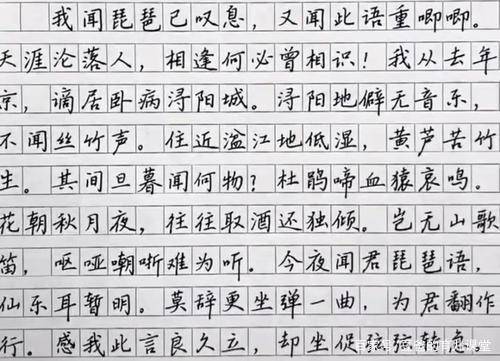 我闻琵琶已叹息，又闻此语重唧唧。
天涯沦落人，相逢何必曾相识！我从去年
京，谪居卧病浔阳城。浔阳地僻无音乐，
不闻丝竹声。住近湓江地低湿，黄芦苦竹
生。其间旦暮闻何物？杜鹃啼血猿哀鸣。
花朝秋月夜，往往取酒还独倾。岂无山歌
笛，呕哑嘲哳难为听。今夜闻君琵琶语，
仙乐耳暂明。莫辞更坐弹一曲，为君翻作
行。感我此言良久立，却坐促弦弦转急。